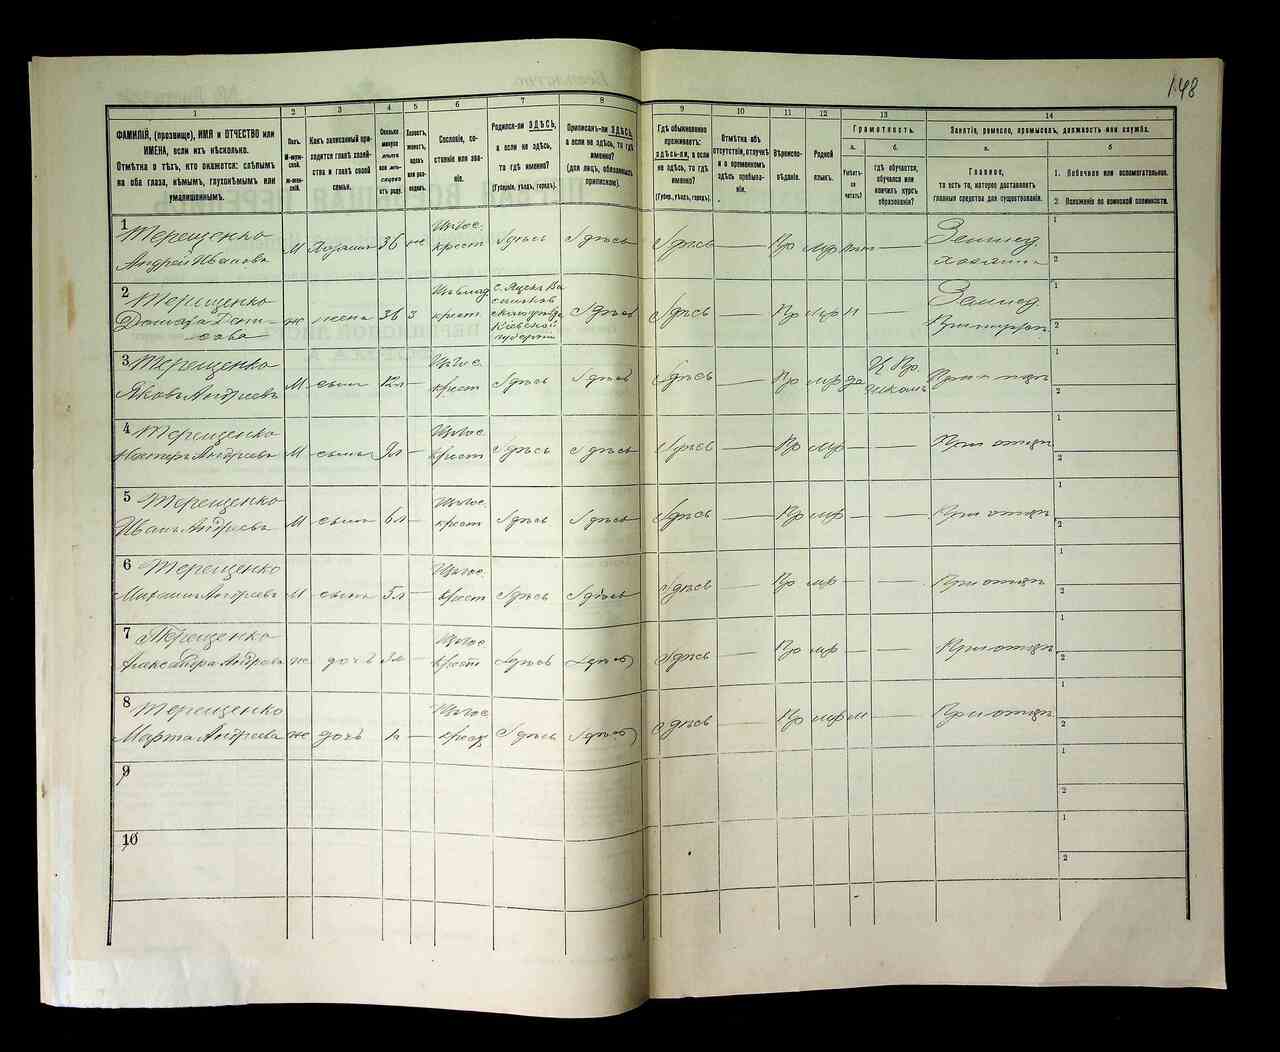 148
1
2
3
4
5
6
7
8
9
10
11
12
13
14
ФАМИЛІЯ, (прозвище), ИМЯ и ОТЧЕСТВО или
ИМЕНА, если ихъ нѣсколько.
Отмѣтка о тѣхъ, кто окажется: слѣпымъ
на оба глаза, нѣмымъ, глухонѣмымъ или
умалишеннымъ.
Полъ.
М-муж-
ской.
ж-жен-
скій.
Какъ записанный при-
ходится главѣ хозяй-
ства и главѣ своей
семьи.
Сколько
минуло
лѣтъ
или мѣ-
сяцевъ
отъ роду.
Холостъ,
женатъ,
вдовъ
или раз-
веденъ.
Сословіе, со-
стояніе или зва-
ніе.
Родился-ли ЗДѢСЬ,
а если не здѣсь,
то гдѣ именно?
(Губернія, уѣздъ, городъ).
Приписанъ-ли ЗДѢСЬ,
а если не здѣсь, то гдѣ
именно?
(для лицъ, обязанныхъ
припиской).
Гдѣ обыкновенно
проживаетъ:
ЗДѢСЬ-ЛИ, а если
не здѣсь, то гдѣ
именно?
(Губер., уѣздъ, городъ).
Отмѣтка объ
отсутствіи, отлучкѣ
и о временномъ
здѣсь пребыва-
ніи.
Вѣроиспо-
вѣданіе.
Родной
языкъ.
Грамотность.
а.
б.
Умѣетъ-
ли
читать?
гдѣ обучается,
обучался или
кончилъ курсъ
образованія?
Занятіе, ремесло, промыселъ, должность или служба.
а.
б
Главное,
то есть то, которое доставляетъ
главныя средства для существованія.
1. Побочное или вспомогательное.
2 Положеніе по воинской повинности.
1 Терещенко
Андрей Ивановъ М хозяинъ 36 крест здѣсь здѣсь здѣсь — Пр мр — Землед.
хозяинъ
1
2
2 Терещенко
Домаха ж жена 36 з крест. с. Яцекъ Ва
сильков
скаго уѣзда
Кіевской
губерніи здѣсь здѣсь — Пр мр н — Землед.
1
2
3 Терещенко
Яковъ Андреевъ М сынъ 12л — крест здѣсь здѣсь здѣсь — Пр мр да школѣ При отцѣ
1
2
4 Терещенко
Андреевъ М сынъ 9л — крест здѣсь здѣсь здѣсь — Пр мр — — При отцѣ
1
2
5 Терещенко
Иванъ Андреевъ М сынъ 6л — крест здѣсь здѣсь здѣсь — Пр мр — — При отцѣ
1
2
6 Терещенко
Михаилъ Андреевъ М сынъ 5л — крест здѣсь здѣсь здѣсь — Пр мр — — При отцѣ
1
2
7 Терещенко
Александра Андреева ж дочь 3л — крест здѣсь здѣсь здѣсь — Пр мр — — При отцѣ
1
2
8 Терещенко
Марта Андреева ж дочь — крест здѣсь здѣсь здѣсь — Пр мр — При отцѣ
1
2
9
1
2
10
1
2